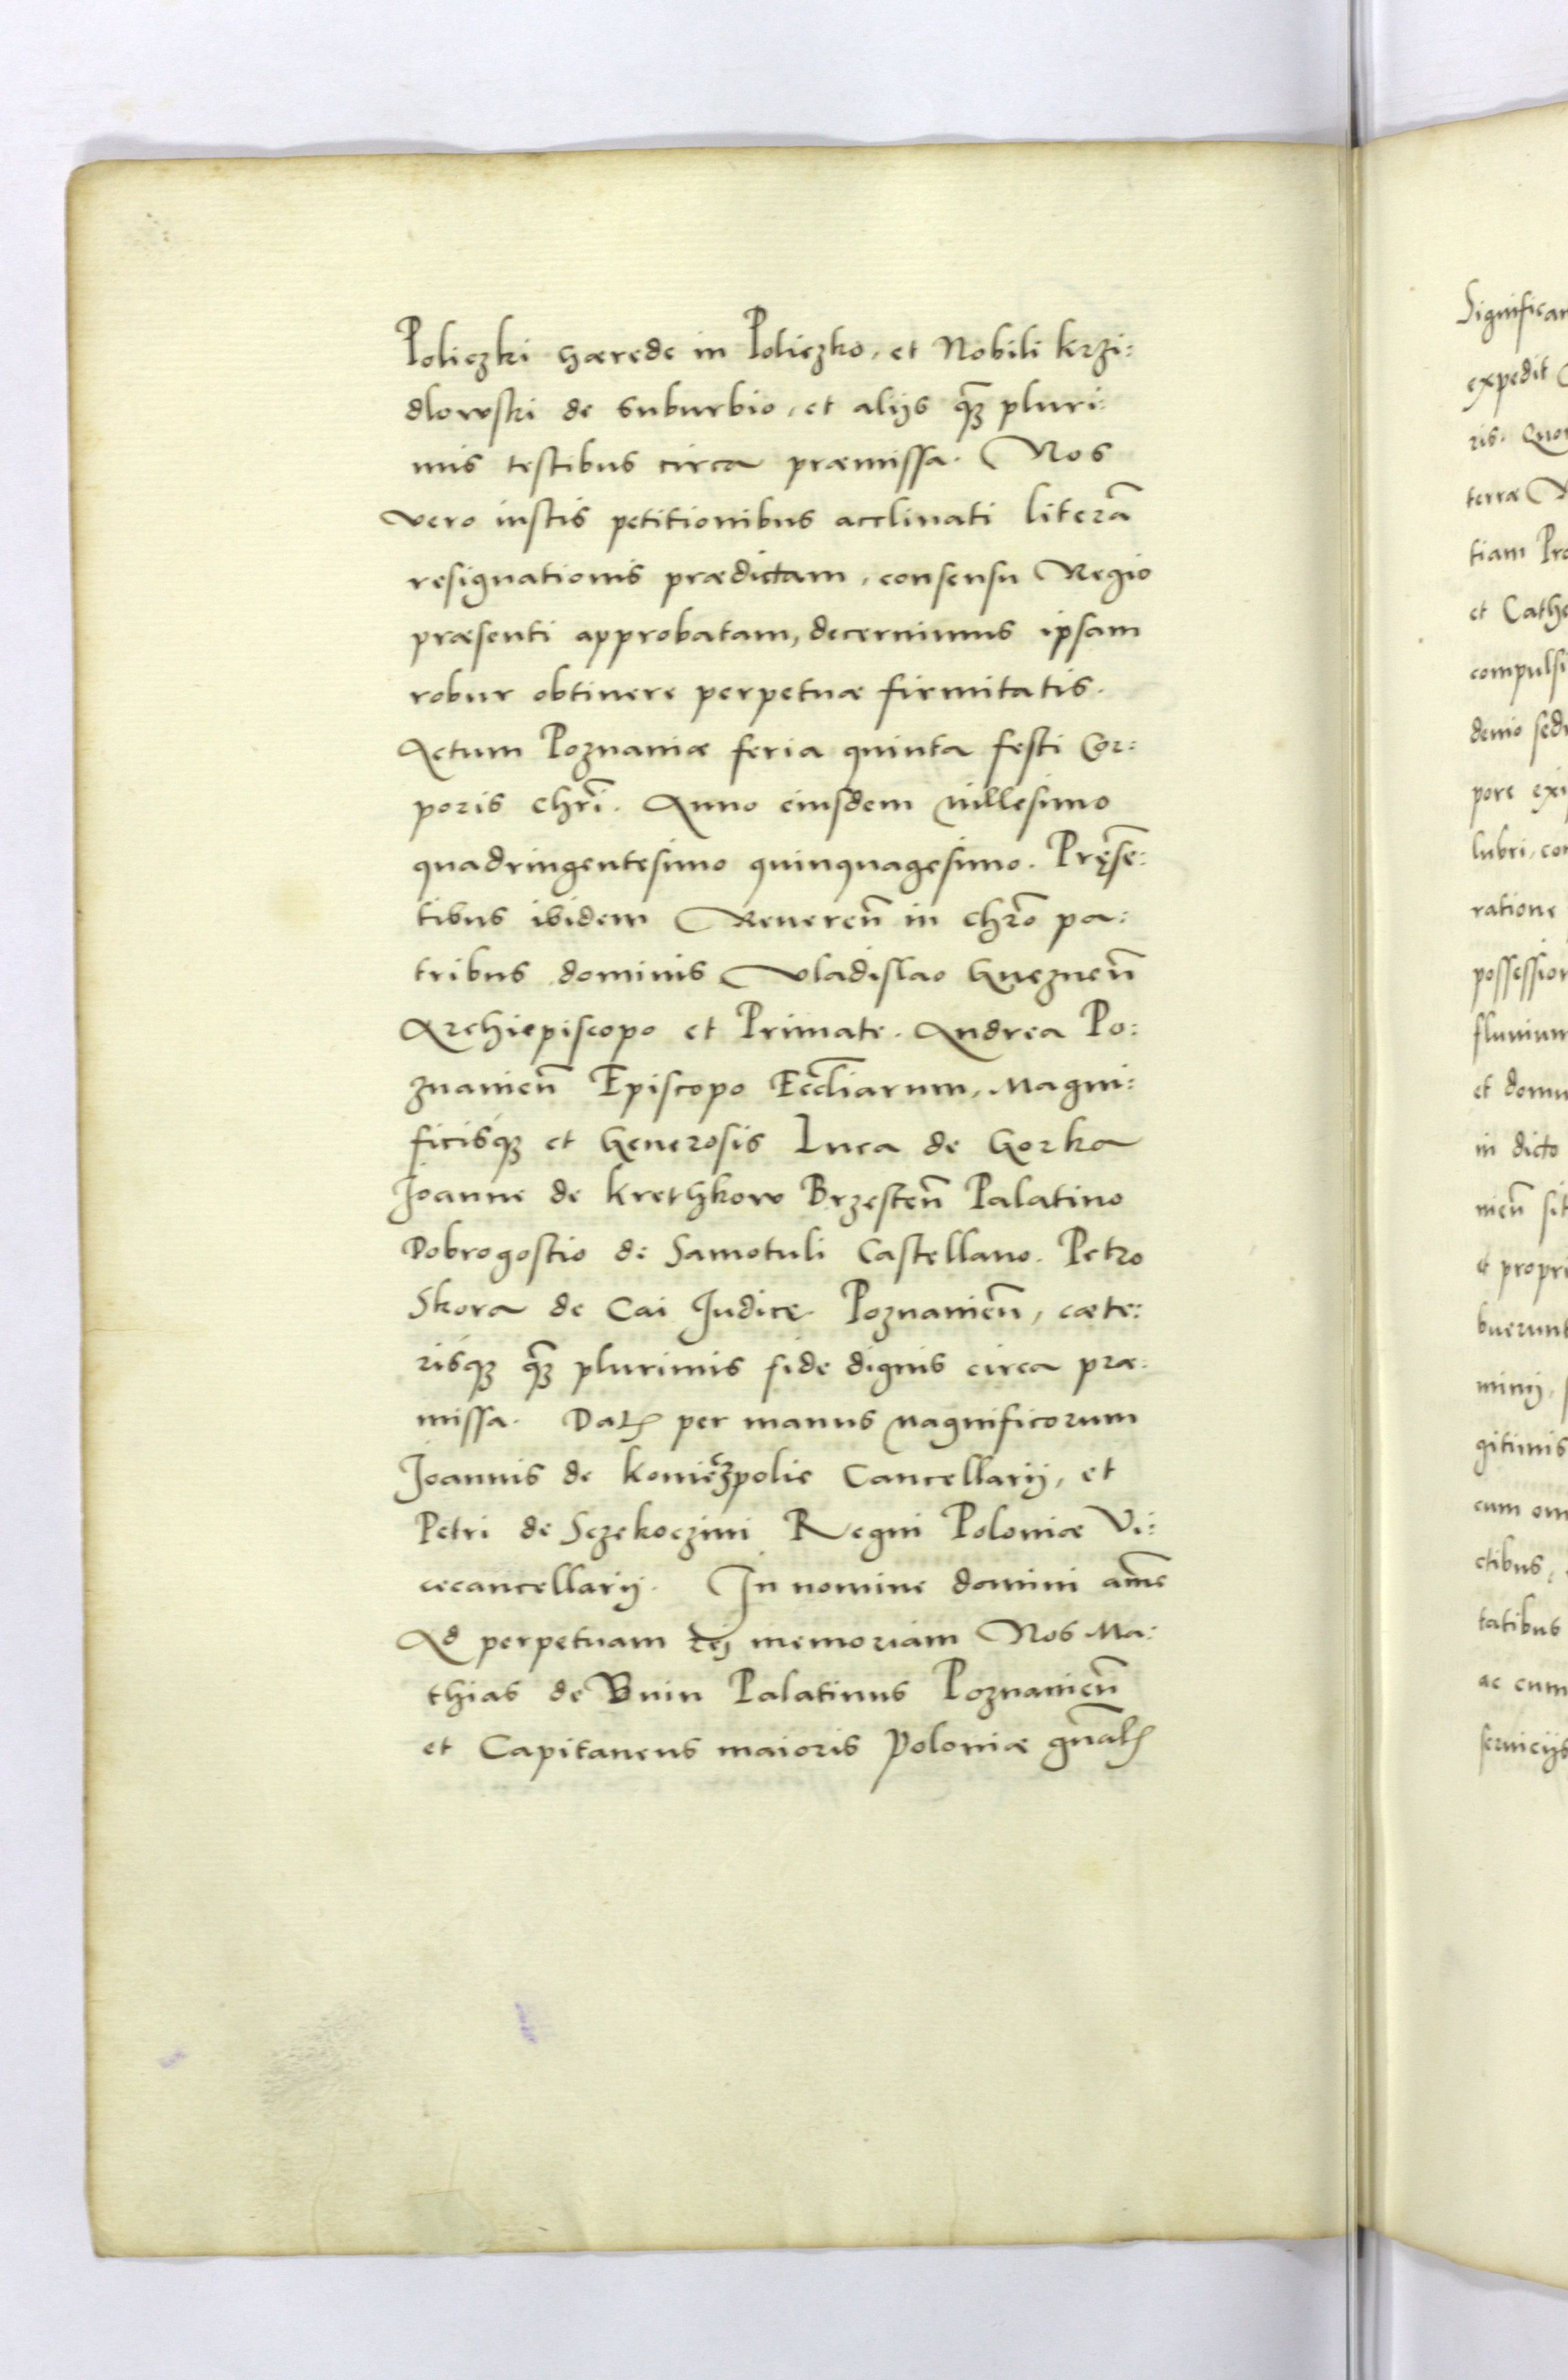 Policzki hærede in Policzko, et Nobili Krzi:
dlowski de suburbio, et alijs q̃ꝫ pluri:
mis testibus circa præmissa. Nos
vero iustis petitionibus acclinati literã
resignationis prædictam, consensu Regio
præsenti approbatam, decernimus ipsam
robur obtinere perpetuæ firmitatis.
Actum Poznaniæ feria quinta festi Cor:
poris chrĩ. Anno eiusdem millesimo
quadringentesimo quinquagesimo. Pręsẽ:
tibus ibidem Reuereñ in chr̃o pa:
tribus dominis Vladislao Gnezneñ
Archiepiscopo et Primate. Andrea Po:
znanieñ Episcopo Eccl̃iarum, Magni:
ficisq́ꝫ et Generosis Luca de Gorka
Joanne de Krethkow Brzesteñ Palatino
Dobrogostio de Samotuli Castellano. Petro
Skora de Cai Judice Poznanieñ, cæte:
risq́ꝫ q̃ꝫ plurimis fide dignis circa præ:
missa. Datꝭ per manus magnificorum
Joannis de Konieczpolie Cancellarij, et
Petri de Sczekoczini Regni Poloniæ Vi:
cecancellarij. In nomine domini amẽ
Ad perpetuam rei memoriam Nos Ma:
thias de Bnin Palatinus Poznanieñ
et Capitaneus maioris Poloniæ gñalꝭ
Significan
expedit
ris. Quo
terræ
tiam Pro
et Cathe
compulsi
denio sedi
pore exi
lubri, con
ratione
possession
fluuium
et domu
in dicto
nieñ sit
et propri
buerunt
minij,
gitimis
cum om
ctibus,
tatibus
ac cum
seruicijs